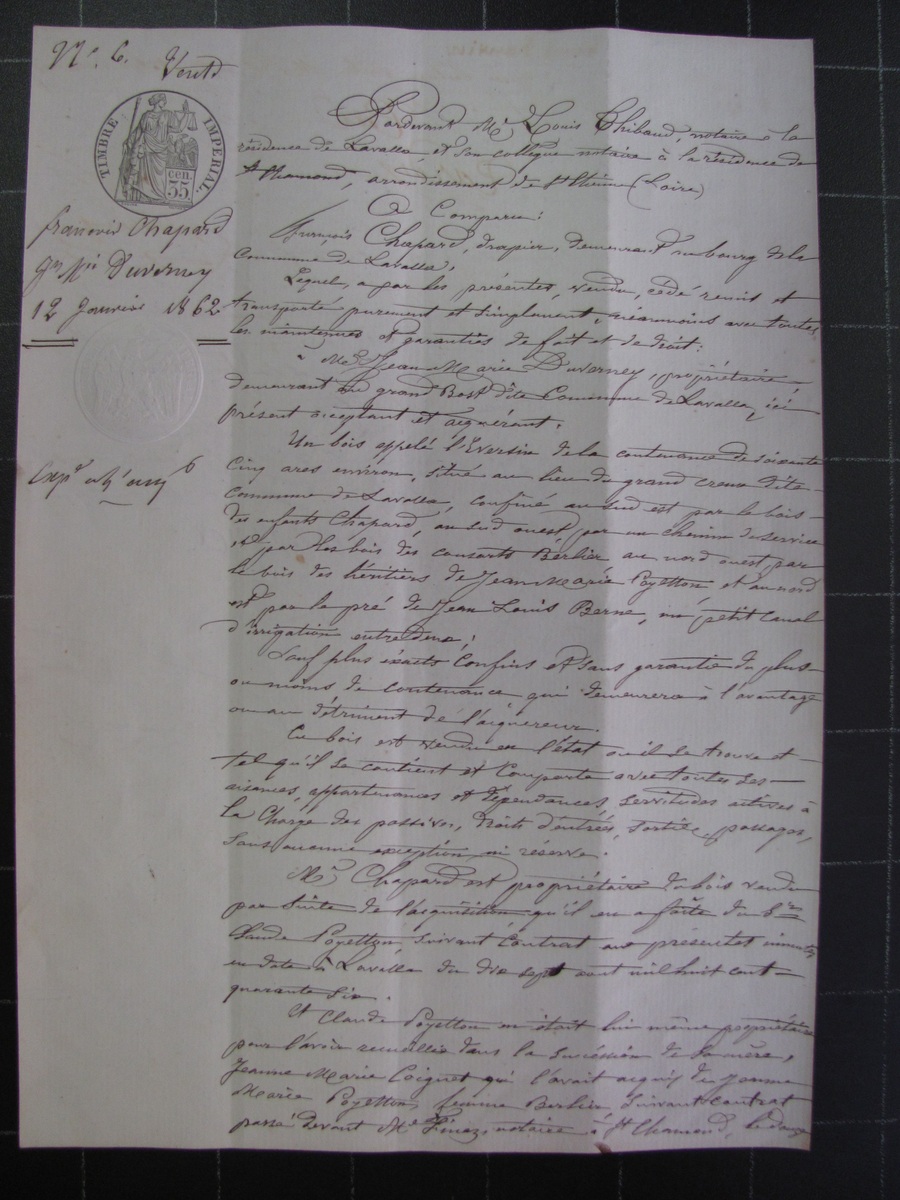 N.º 6. Vente
TIMBRE IMPÉRIAL
35 cen.
François Chapard
Jn Mie Duverney
12 Janvier 1862
Pardevant Me Louis Thibaud, notaire à la
résidence de Lavalla, et son collègue notaire à la résidence de
St Chamond, arrondissement de St Etienne (Loire)
A Comparu:
François Chapard, drapier, demeurant au bourg de la
Commune de Lavalla,
Lequel, a par les présentes, vendu, cédé remis et
transporté purement et simplement, néanmoins avec toutes
les maintenues et garanties de fait et de droit:
à Mr Jean Marie Duverney, propriétaire
demeurant au grand Bost dite Commune de Lavalla, ici
présent acceptant et acquérant.
Un bois appelé l'Eversin de la contenance de soixante
Cinq ares environ, situé au lieu du grand creux dite
commune de Lavalla, confiné au sud est par le bois
des enfants Chapard, au sud ouest, par un chemin de service
et par les bois des consorts Berlier au nord ouest, par
le bois des héritiers de Jean Marie Poyetton, et au nord
est par le pré de Jean Louis Berne, un petit canal
d'irrigation entredeux;
Sauf plus exacts confins et sans garantie du plus
ou moins de contenance qui demeurera à l'avantage
ou au détriment de l'acquéreur.
Ce bois est vendu en l'état où il se trouve et
tel qu'il se contient et Comporte avec toutes ses
aisances, appartenances et dépendances, servitudes actives à
la Charge des passives, droits d'entrées, sorties, passages,
sans aucune exception ni réserve.
Mr Chapard est propriétaire du bois vendu
par suite de l'acquisition qu'il en a faite du Sr
Claude Poyetton suivant Contrat aux présentes
en date à Lavalla du dix sept août mil huit cent
quarante six.
Et Claude Poyetton en était lui même propriétaire
pour l'avoir recueillie dans la succession de sa mère,
Jeanne Marie Coignet qui l'avait acquis de Jeanne
Marie Poyetton, femme Berlier, suivant contrat
passé devant Me Finaz, notaire à St Chamond, le douze